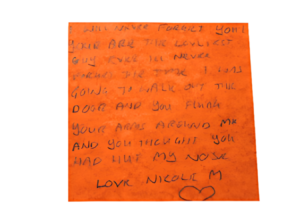 WILL NEVER FORGET YOU!
YOUR ARE THE LOVLIEST
GUY EVER IM NEVER
THE TIME I WAS
GOING TO WALK OUT THE
DOOR AND YOU FLUNG
YOUR ARMS AROUND ME
AND YOU THOUGHT YOU
HAD HURT MY NOSE
LOVE NICOLE M